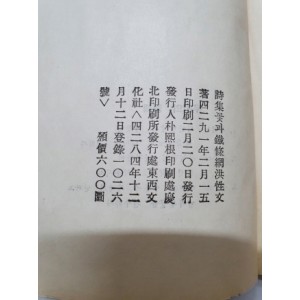 詩集꽃과鐵條網洪性文
著四二九一年二月一五
日印刷二月二〇日發行
發行人朴熙根印刷處慶
北印刷所發行處東西文
化社〈四二八四年十二
月十二日登錄一〇二六
號〉 頒價六〇〇圜